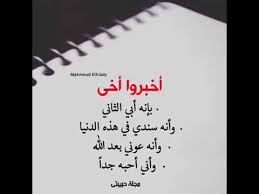 Mahmoud Elhilaly
أخبروا أخى
. بإنه أبي الثاني
. وأنه سندي في هذه الدنيا
. وأنه عوني بعد الله
. وأني أحبه جداً
مجلة حبيبتى